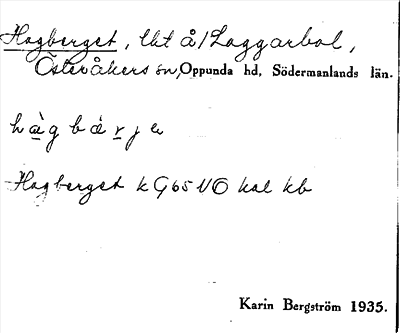 Hagberget, lht å/Laggarbol,
Österåkers sn, Oppunda hd, Södermanlands län.
hàg bǽrje
Hagberget k G65 NO kal kb
Karin Bergström 1935.